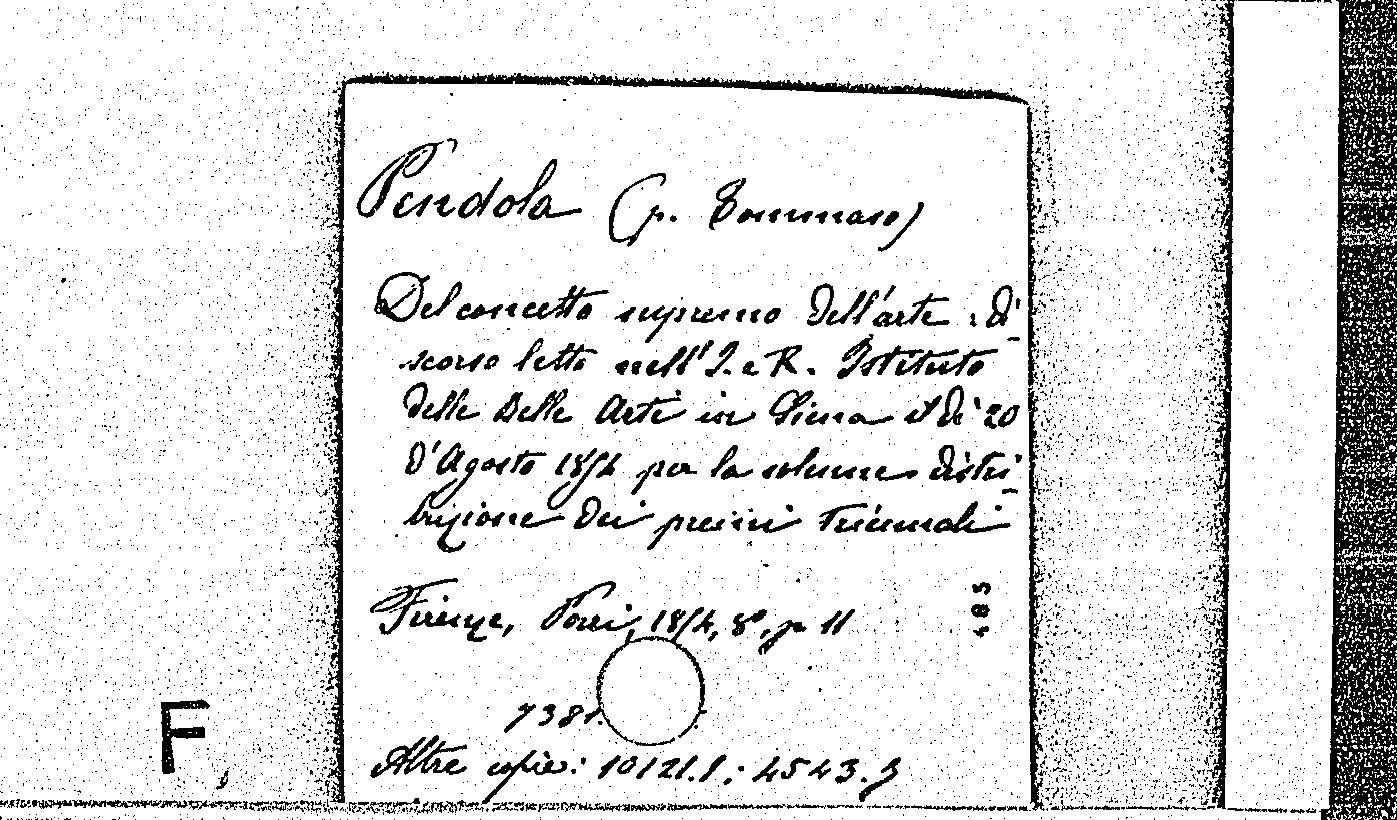 Pendola (p. Tommaso)
Del concetto supremo dell'arte: di-
scorso letto nell'I. e R. Istituto
delle Belle Arti in Siena il dì 20
d'Agosto 1854 per la solenne distri-
buzione dei premi triennali
Firenze, 1854, 8°, p. 11
485
7381.
Altre copie: 10121.1; 4543.3
F